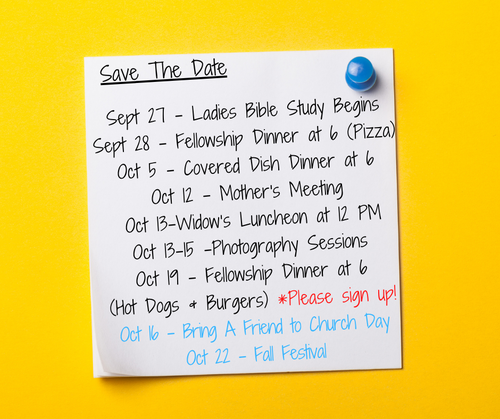 Save The Date
Sept 27 - Ladies Bible Study Begins
Sept 28 - Fellowship Dinner at 6 (Pizza)
Oct 5 - Covered Dish Dinner at 6
Oct 12 - Mother's Meeting
Oct 13-Widow's Luncheon at 12 PM
Oct 13-15 -Photography Sessions
Oct 19 - Fellowship Dinner at 6
(Hot Dogs & Burgers) *Please sign up!
Oct 16 - Bring A Friend to Church Day
Oct 22 - Fall Festival